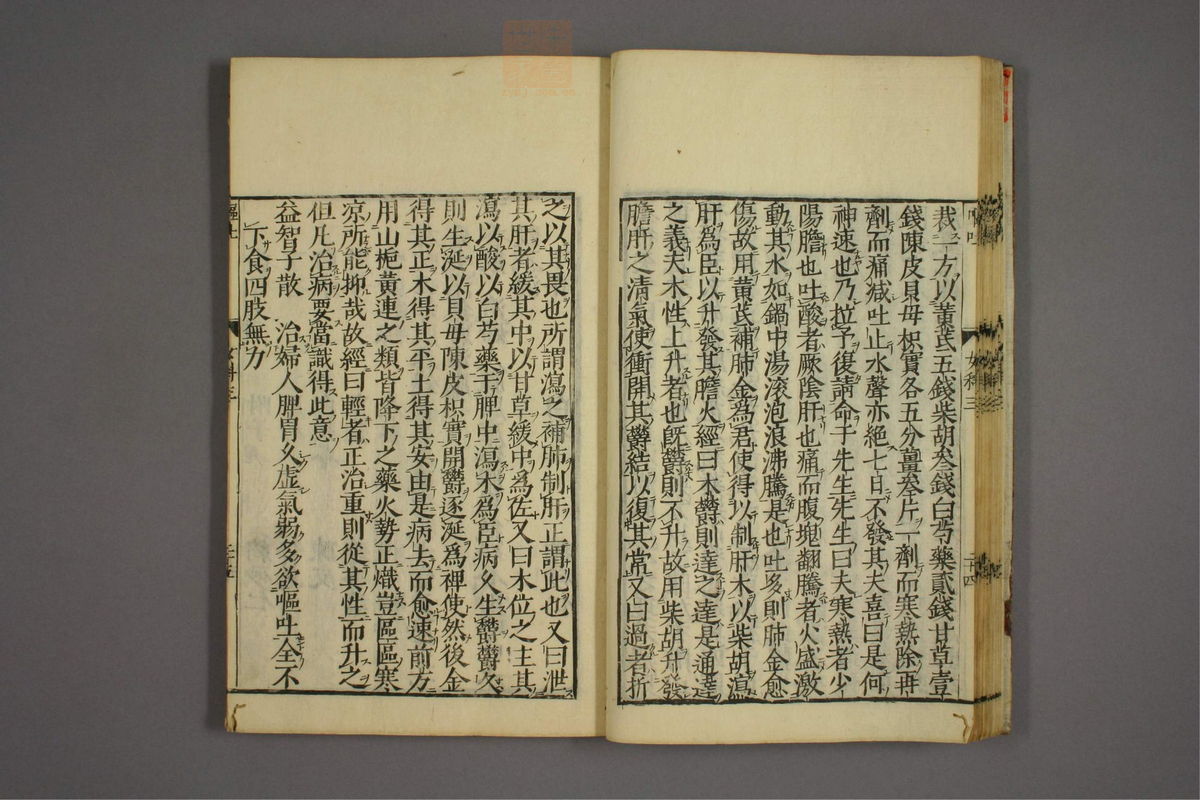 裁一方以黄芪五錢柴胡叁錢白芍藥貳錢甘草壹
錢陳皮貝母枳實各五分薑叁片一劑而寒熱除再
劑而痛减吐止水聲亦絶七日不發其夫喜曰是何
神速也乃拉予復請命于先生先生曰夫寒熱者少
陽膽也吐酸者厥陰肝也痛而腹塊翻騰者火盛激
動其水如鍋中湯滚泡浪沸騰是也吐多則肺金愈
傷故用黄芪補肺金爲君使得以制肝木以柴胡瀉
肝爲臣以升發其膽火經曰木欝則達之達是通達
之義夫木性上升者也旣欝則不升故用柴胡升發
膽肝之清氣使衝開其欝結以復其常又曰過者折
之以其畏也所謂瀉之補肺制肝正謂此也又曰泄
其肝者緩其中以甘草緩中爲佐又曰木位之主其
瀉以酸以白芍藥于脾中瀉木爲臣病久生欝欝久
則生涎以貝母陳皮枳實開欝逐涎爲裨使然後金
得其正木得其平土得其安由是病去而愈速前方
用山梔黄連之類皆降下之藥火勢正熾豈區區寒
凉所能抑哉故經曰輕者正治重則從其性而升之
但凡治病要當識得此意
益智子散　治婦人脾胃久虛氣弱多欲嘔吐全不
下食四肢無力
女科三
二十四